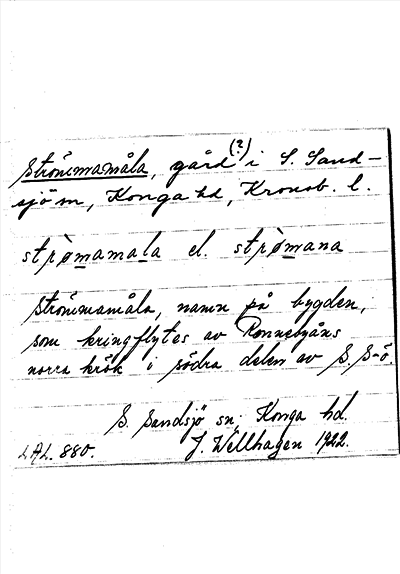 Strömmamåla, gård (?) i S. Sand-
sjö sn, Konga hd, Kronob. l.
strömamala el. strömana
Strömmamåla, namn på bygden,
som kringflytes av Ronnebyåns
norra krök i södra delen av S. S-ö.
S. Sandsjö sn; Konga hd.
LAL. 880. J. Wellhagen 1922.